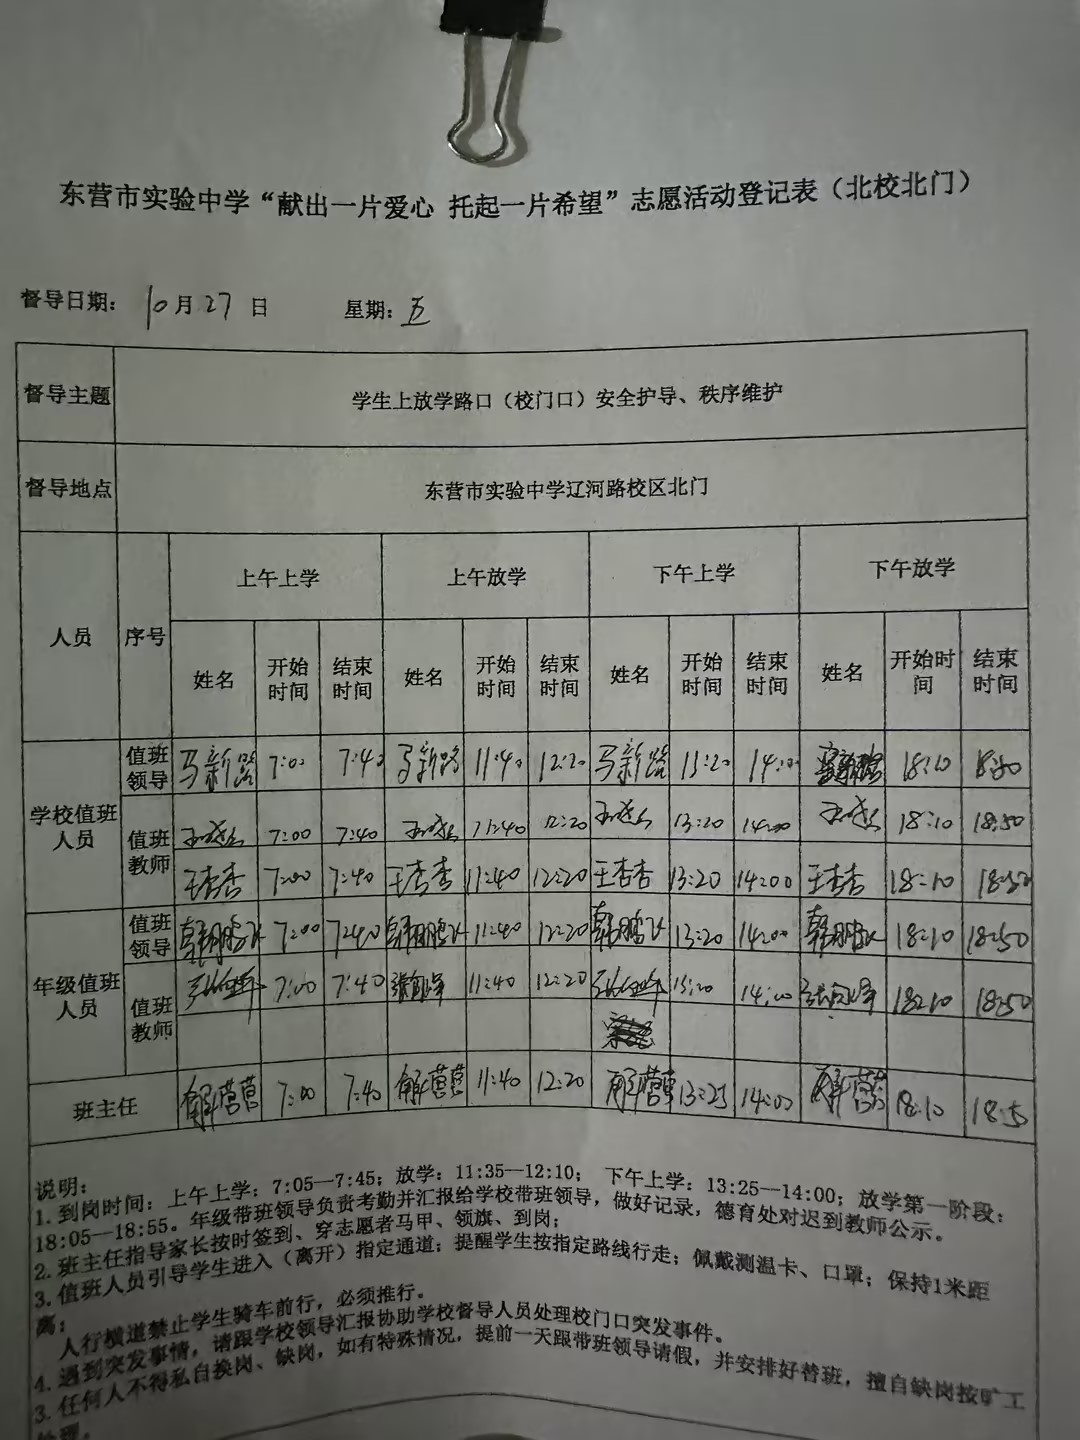 东营市实验中学“献出一片爱心 托起一片希望”志愿活动登记表（北校北门）
督导日期： 10月27日 星期：五
督导主题 学生上放学路口（校门口）安全护导、秩序维护
督导地点 东营市实验中学辽河路校区北门
人员 序号 上午上学 上午放学 下午上学 下午放学
姓名 开始时间 结束时间 姓名 开始时间 结束时间 姓名 开始时间 结束时间 姓名 开始时间 结束时间
学校值班人员 值班领导 马新路 7:00 7:40 马新路 11:40 12:20 马新路 13:20 14:00 18:10 18:50
值班教师 7:00 7:40 11:40 12:20 13:20 14:00 18:10 18:50
王杏杏 7:00 7:40 王杏杏 11:40 12:20 王杏杏 13:20 14:00 王杏杏 18:10 18:50
年级值班人员 值班领导 韩鹏飞 7:00 7:40 韩鹏飞 11:40 12:20 韩鹏飞 13:20 14:00 韩鹏飞 18:10 18:50
值班教师 7:00 7:40 11:40 12:20 13:20 14:00 18:10 18:50
班主任 解营营 7:00 7:40 解营营 11:40 12:20 解营营 13:25 14:00 解营营 18:10 18:50
说明：
1. 到岗时间：上午上学：7:05—7:45；放学：11:35—12:10； 下午上学：13:25—14:00；放学第一阶段：
18:05—18:55。年级带班领导负责考勤并汇报给学校带班领导，做好记录，德育处对迟到教师公示。
2. 班主任指导家长按时签到、穿志愿者马甲、领旗、到岗；
3. 值班人员引导学生进入（离开）指定通道；提醒学生按指定路线行走；佩戴测温卡、口罩；保持1米距
离；
人行横道禁止学生骑车前行，必须推行。
4. 遇到突发事情，请跟学校领导汇报协助学校督导人员处理校门口突发事件。
3. 任何人不得私自换岗、缺岗，如有特殊情况，提前一天跟带班领导请假，并安排好替班，擅自缺岗按旷工
处理。